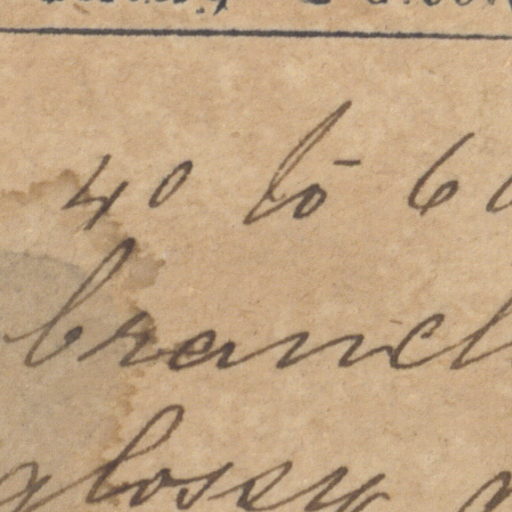 40 to 60
branch
glossy